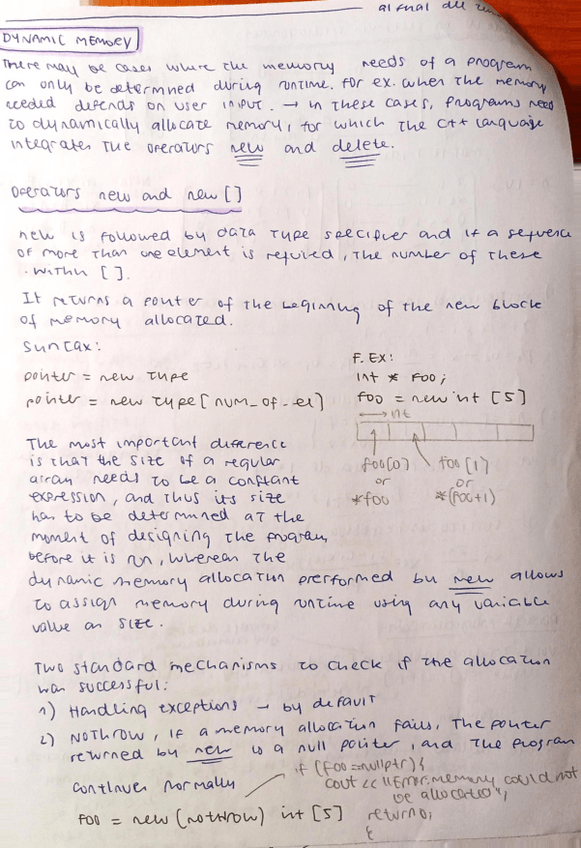 DYNAMIC MEMORY
There may be cases where the memory needs of a program
can only be determined during runtime. For ex. when the memory
needed depends on user input. → in these cases, programs need
to dynamically allocate memory, for which the C++ language
integrates the operators new and delete.
operators new and new []
new is followed by data type specifier and if a sequence
of more than one element is required, the number of these
within [].
It returns a pointer of the beginning of the new block
of memory allocated.
Syntax:
pointer = new type
pointer = new type [num_of_el]
F. EX:
int * foo;
foo = new int [5]
→ int
foo[0] foo[1]
or or
*foo *(foo+1)
The most important difference
is that the size of a regular
array needs to be a constant
expression, and thus its size
has to be determined at the
moment of designing the program,
before it is run, whereas the
dynamic memory allocation preformed by new allows
to assign memory during runtime using any variable
value as size.
Two standard mechanisms to check if the allocation
was successful:
1) Handling exceptions → by default
2) NOTHROW, if a memory allocation fails, the pointer
returned by new is a null pointer, and the program
continues normally
foo = new (nothrow) int [5]
if (foo =nullptr) {
cout << "Error: memory could not
be allocated";
return 0;
}